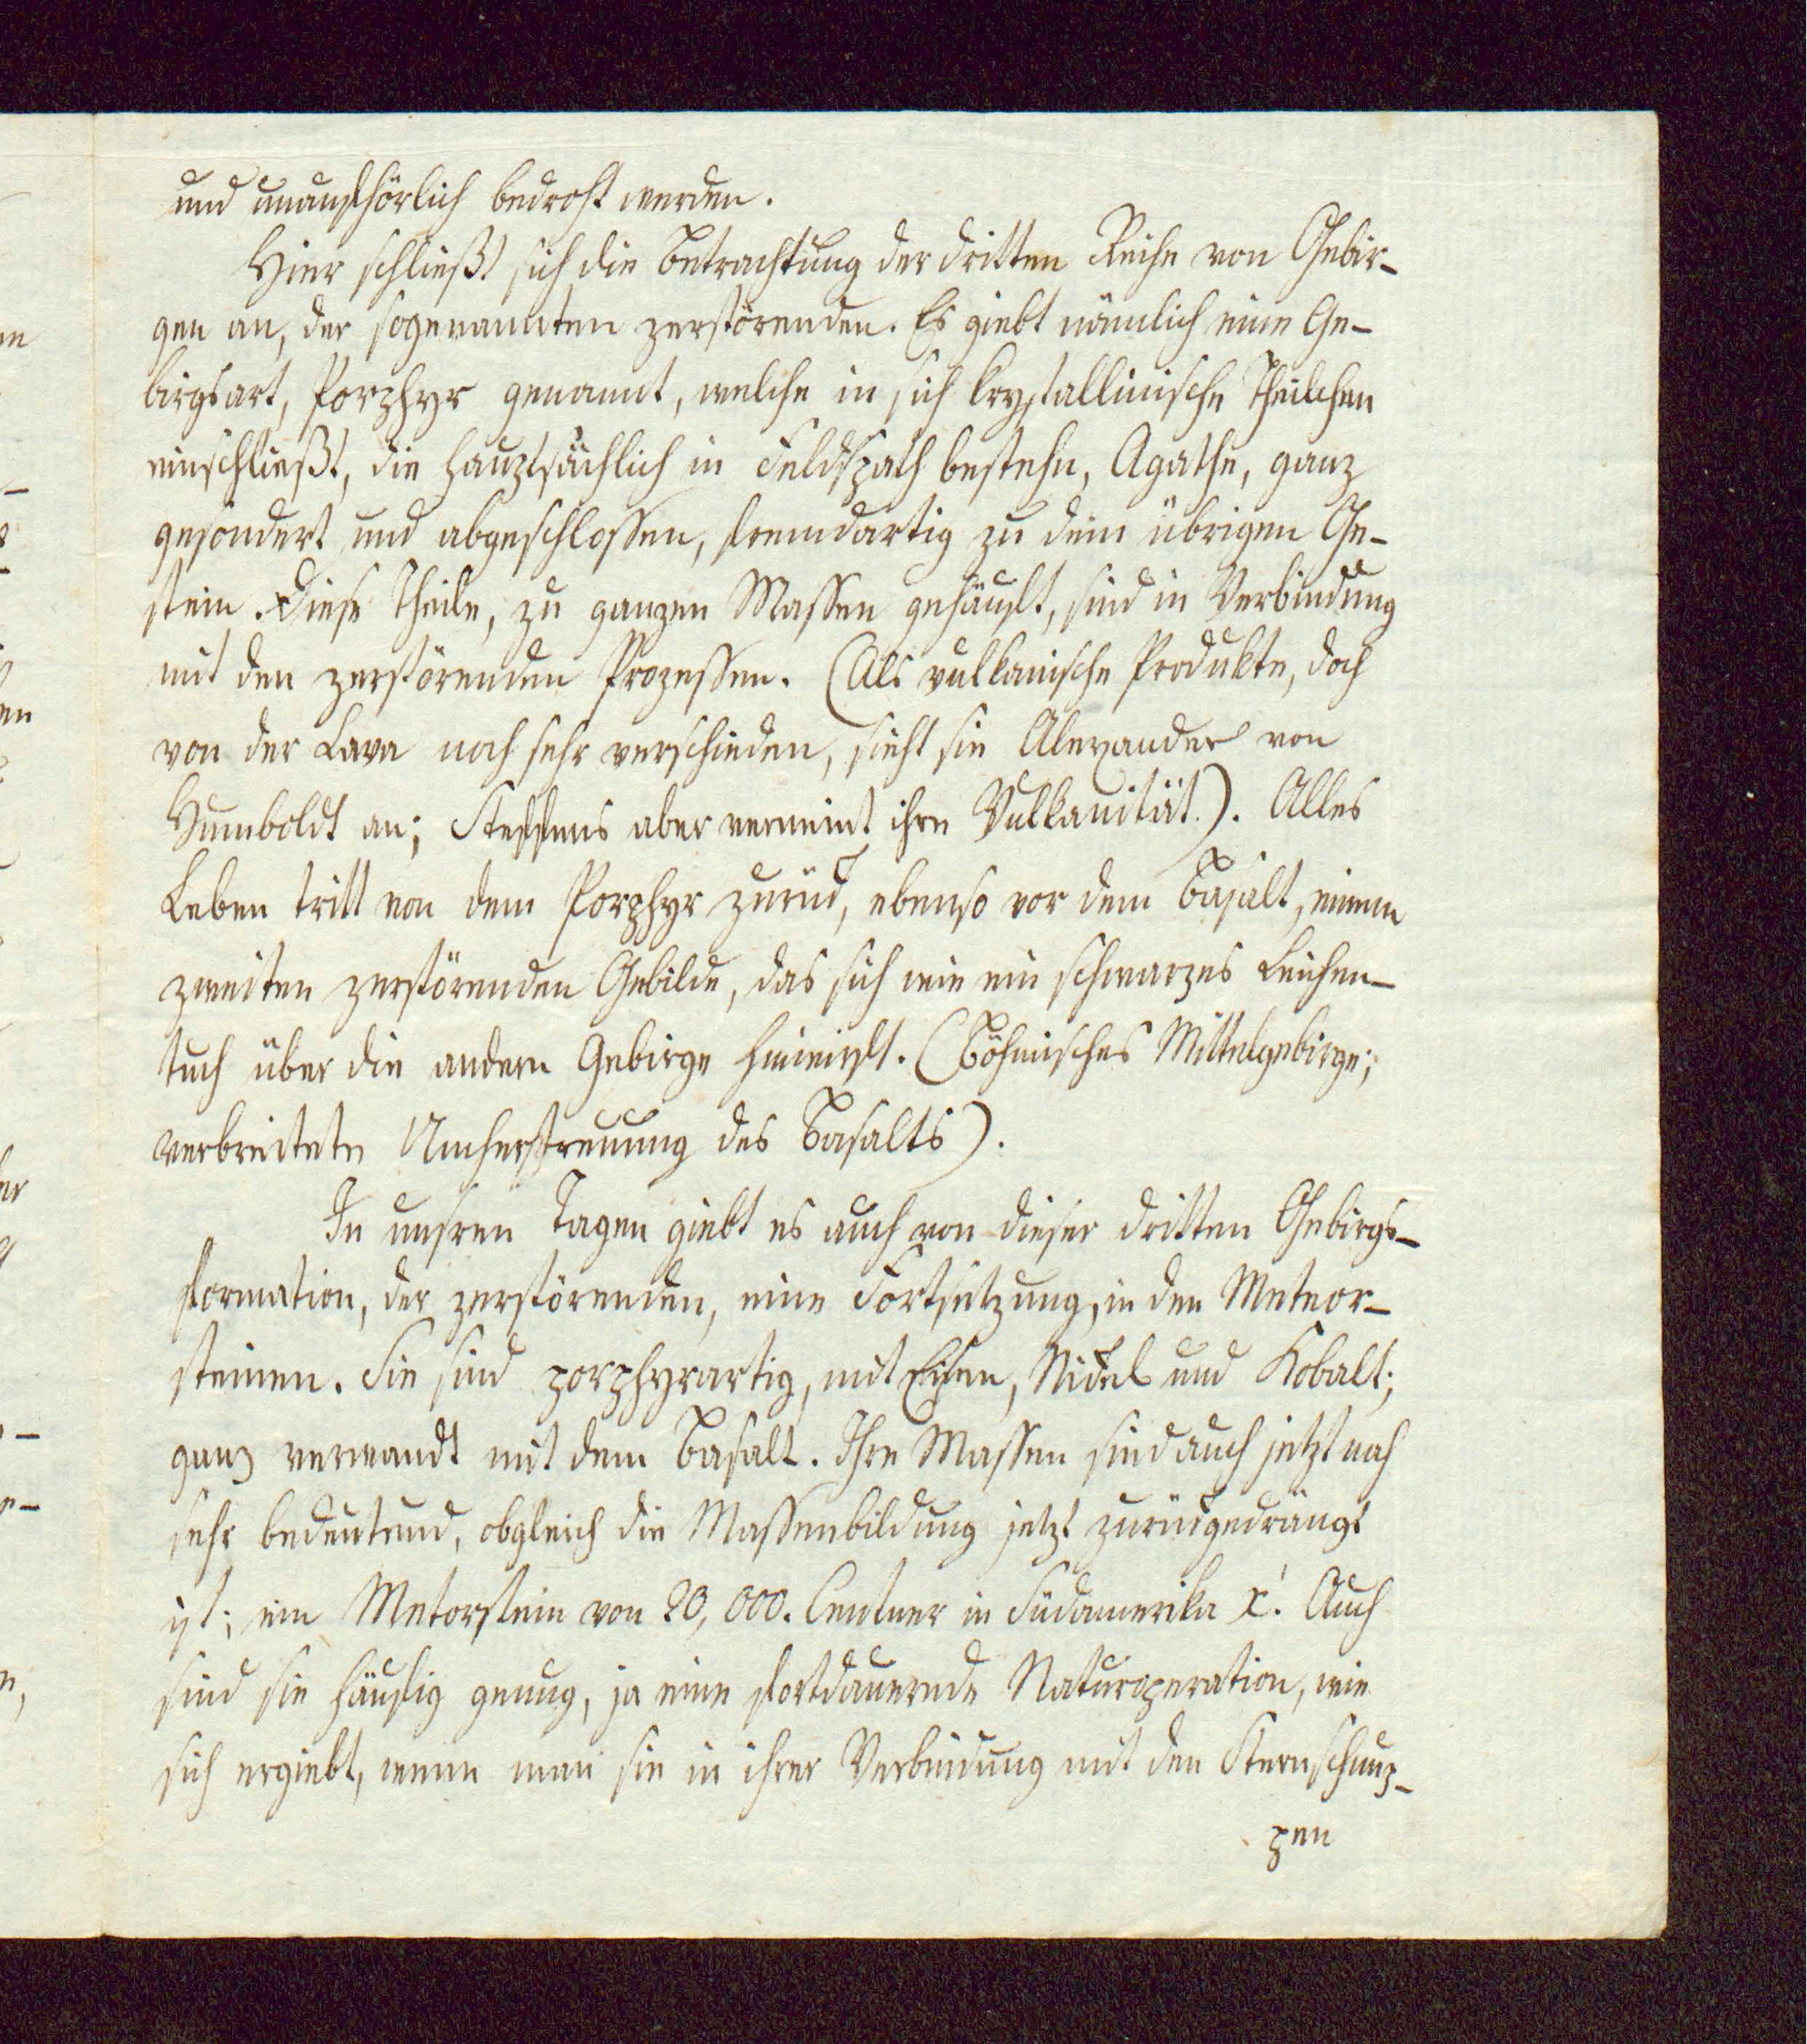 und unaufhörlich bedroht werden.
Hier schließt sich die Betrachtung der dritten Reihe von Gebir-
gen an, der sogenannten zerstörenden. Es giebt nämlich eine Ge-
birgsart, Porphyr genannt, welche in sich krystallinische Theilchen
einschließt, die hauptsächlich in Feldspath bestehn, Agathe, ganz
gesondert und abgeschlossen, fremdartig zu dem übrigen Ge-
stein. Diese Theile, zu ganzen Massen gehäuft, sind in Verbindung
mit den zerstörenden Prozessen. (Als vulkanische Produkte, doch
von der Lava noch sehr verschieden, sieht sie Alexander von
Humboldt an; Steffens aber verneint ihre Vulkanität.). Alles
Leben tritt von dem Porphyr zurück, ebenso vor dem Basalt, einem
zweiten zerstörenden Gebilde, das sich wie ein schwarzes Leichen-
tuch über die andern Gebirge hinwirft. (Böhmisches Mittelgebirge;
verbreitete Umherstreuung des Basalts).
In unsren Tagen giebt es auch von dieser dritten Gebirgs-
formation, der zerstörenden, eine Fortsetzung, in den Meteor-
steinen. Sie sind porphyrartig, mit Eisen, Nickel und Kobalt;
ganz verwandt mit dem Basalt. Ihre Massen sind auch jetzt noch
sehr bedeutend, obgleich die Massenbildung jetzt zurückgedrängt
ist; ein Metorstein von 20,000. Centner in Südamerika x. Auch
sind sie häufig genug, ja eine fortdauernde Naturoperation, wie
sich ergiebt, wenn man sie in ihrer Verbindung mit den Sternschnup-
pen